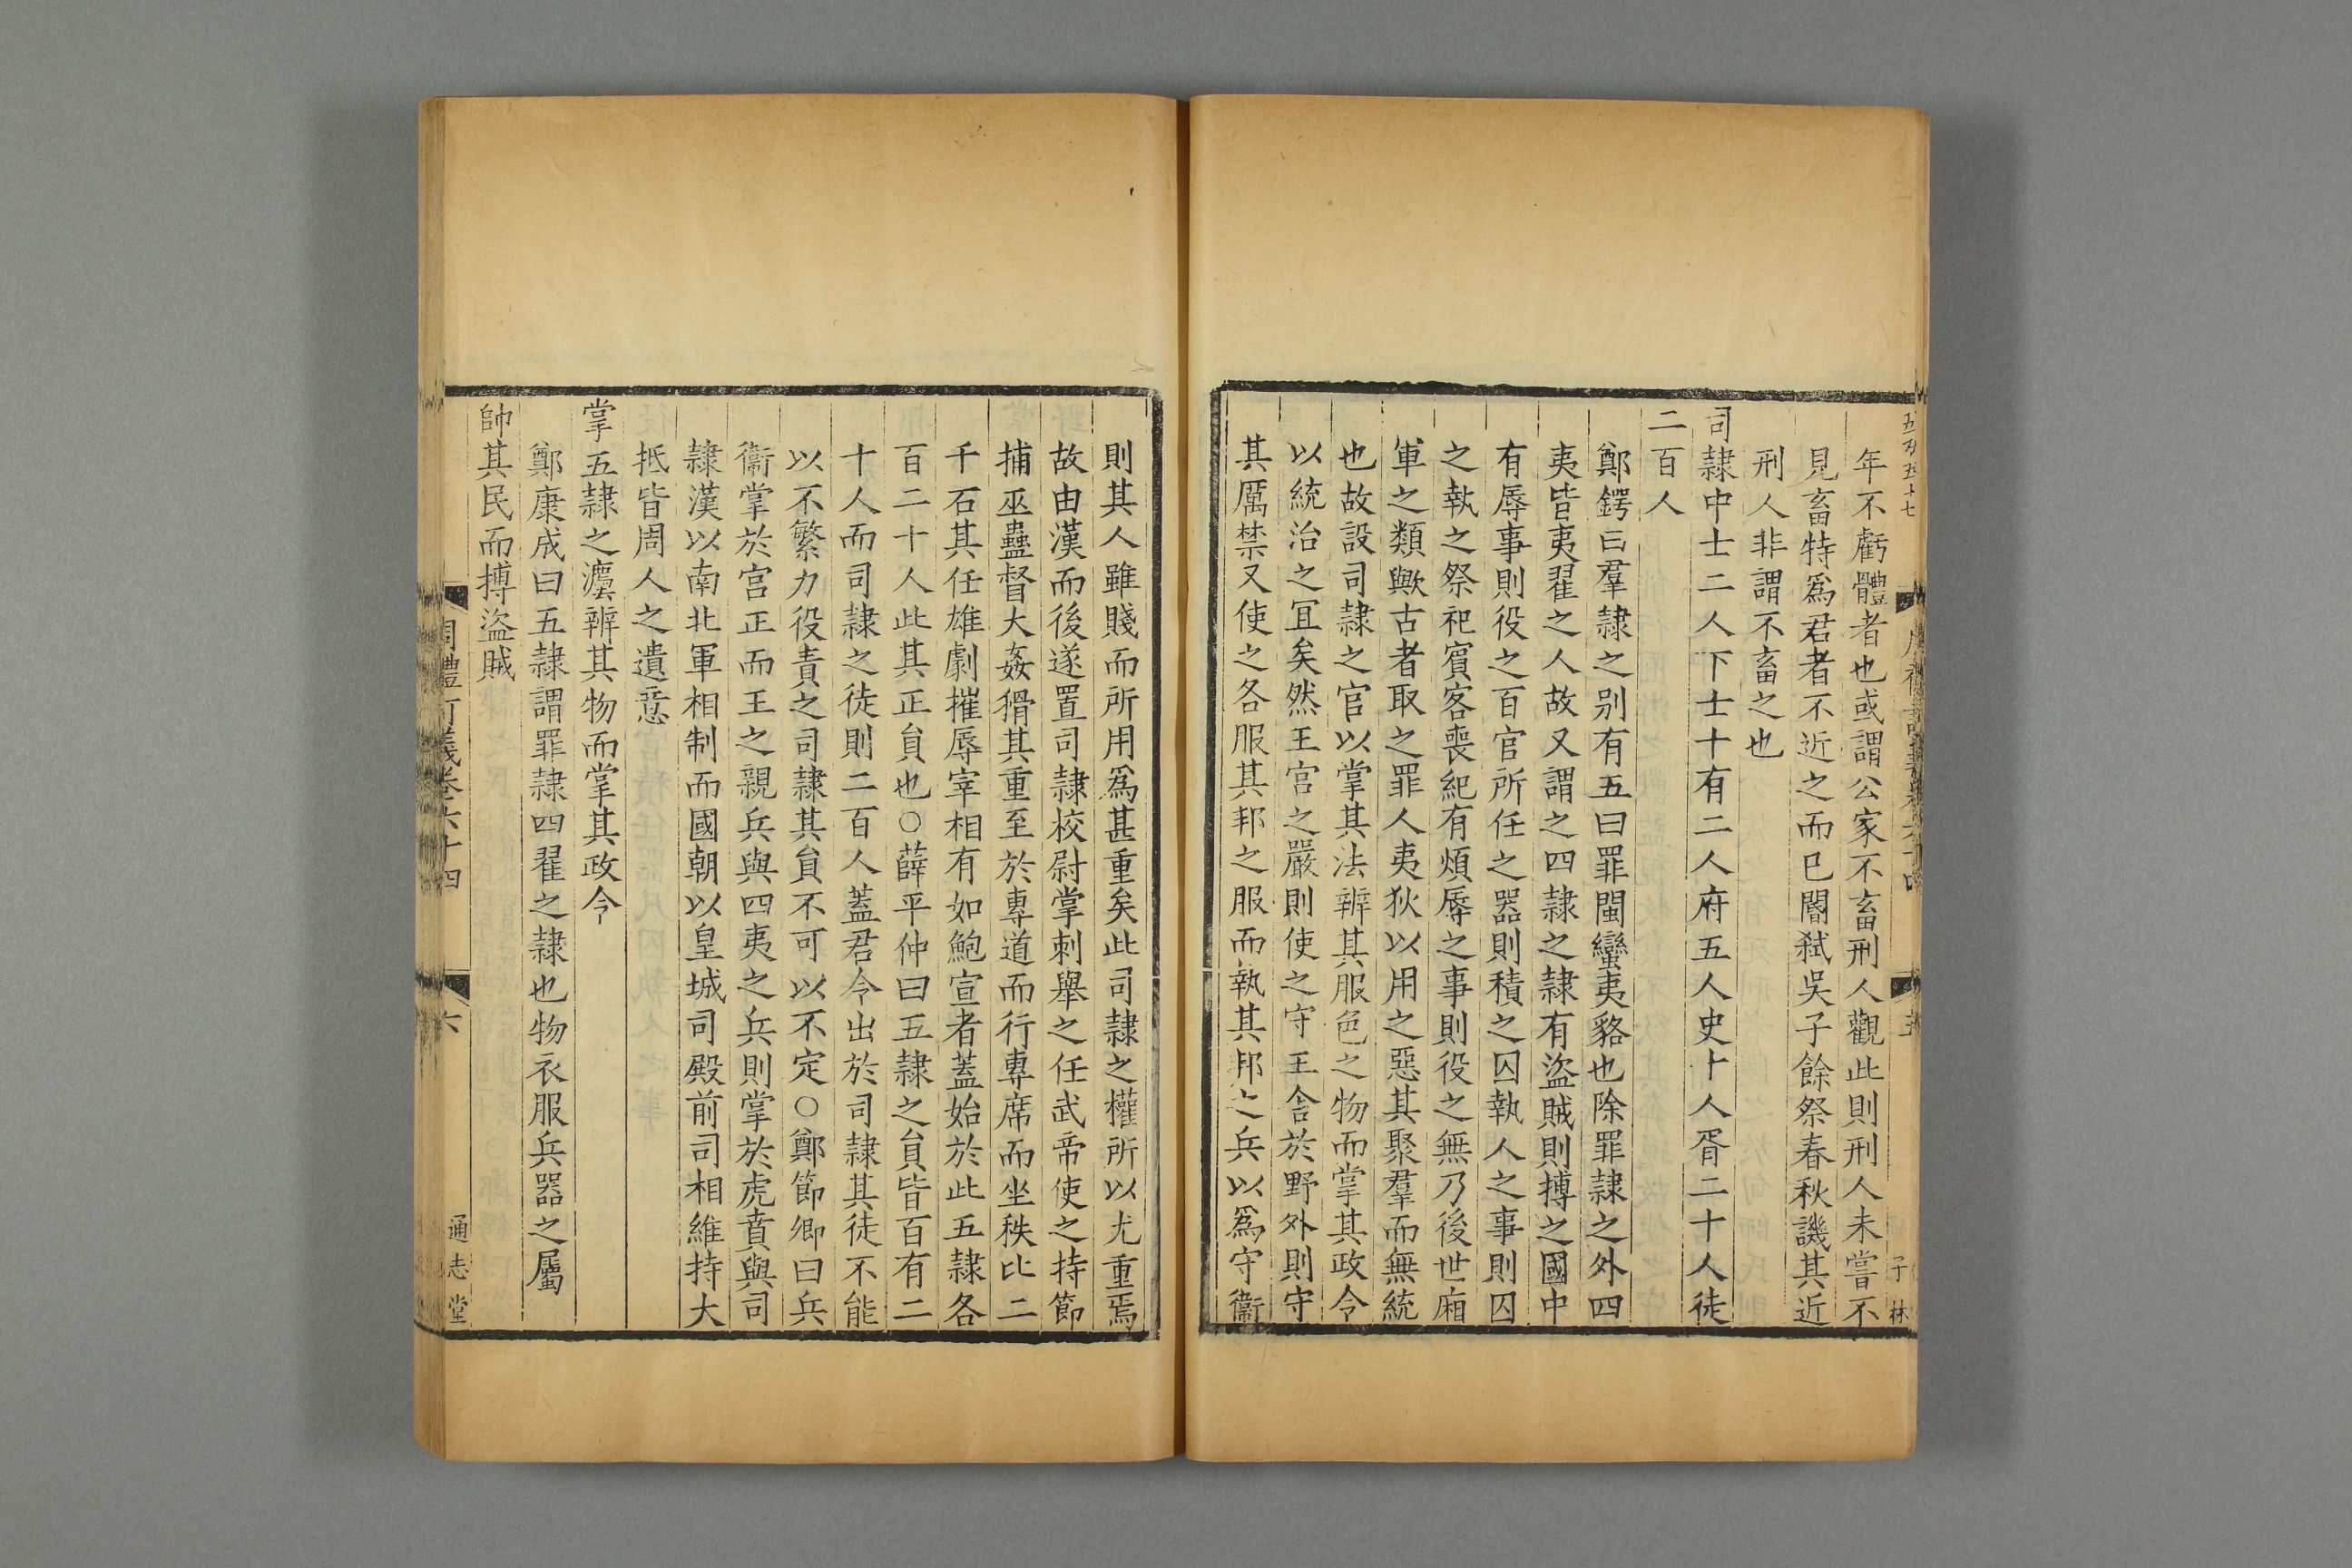 年不虧體者也或謂公家不畜刑人觀此則刑人未嘗不
見畜特爲君者不近之而已閽弒吳子餘祭春秋譏其近
刑人非謂不畜之也
司隷中士二人下士十有二人府五人史十人胥二十人徒
二百人
鄭鍔曰羣隷之别有五曰罪閩蠻夷貉也除罪隷之外四
夷皆夷翟之人故又謂之四隷之隷有盜賊則搏之國中
有辱事則役之百官所任之器則積之囚執人之事則囚
之執之祭祀賓客喪紀有煩辱之事則役之無乃後世廂
軍之類歟古者取之罪人夷狄以用之惡其聚羣而無統
也故設司隷之官以掌其法辨其服色之物而掌其政令
以統治之冝矣然王宫之嚴則使之守王舎於野外則守
其厲禁又使之各服其邦之服而執其邦之兵以爲守衞
則其人雖賤而所用爲甚重矣此司隷之權所以尤重焉
故由漢而後遂置司隷校尉掌刺舉之任武帝使之持節
捕巫蠱督大姦猾其重至於專道而行專席而坐秩比二
千石其任雄劇摧辱宰相有如鮑宣者蓋始於此五隷各
百二十人此其正貟也○薛平仲曰五隷之貟皆百有二
十人而司隷之徒則二百人蓋君令出於司隷其徒不能
以不繁力役責之司隷其貟不可以不定○鄭節卿曰兵
衞掌於宫正而王之親兵與四夷之兵則掌於虎賁與司
隷漢以南北軍相制而國朝以皇城司殿前司相維持大
抵皆周人之遺意
掌五隷之灋辨其物而掌其政令
鄭康成曰五隷謂罪隷四翟之隷也物衣服兵器之屬
帥其民而搏盜賊
周禮訂義卷六十四
六
通志堂